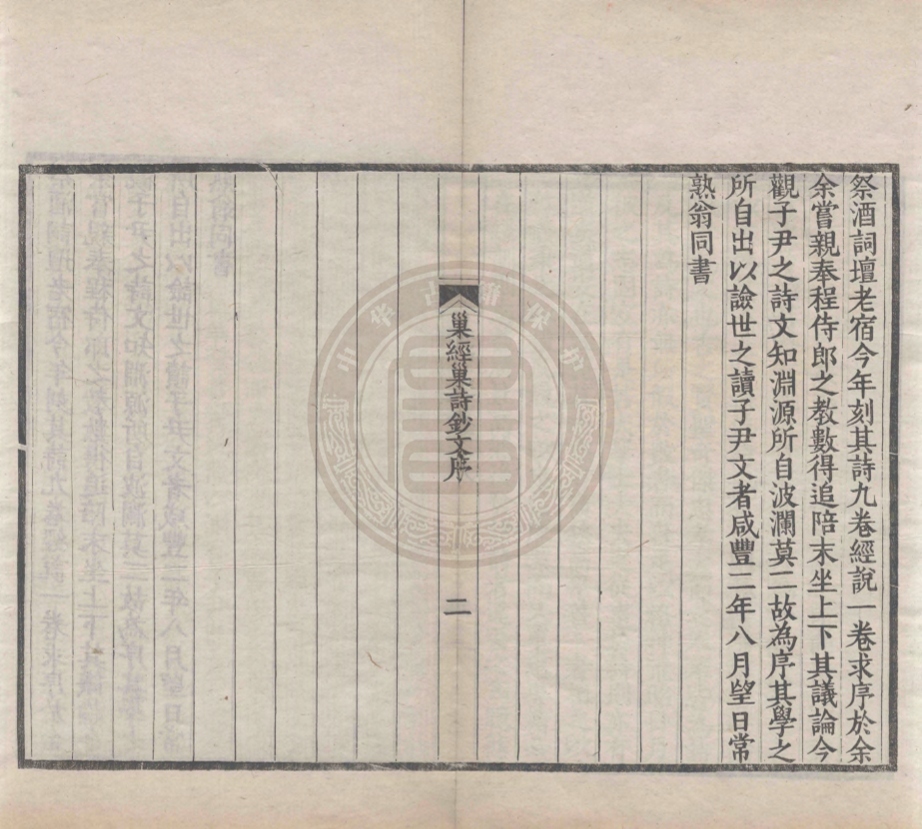 祭酒詞壇老宿今年刻其詩九卷經說一卷求序於余
余嘗親奉程侍郎之教數得追陪末坐上下其議論今
觀子尹之詩文知淵源所自波瀾莫二故為序其學之
所自出以諗世之讀子尹文者咸豐二年八月望日常
熟翁同書
巢經巢詩鈔文序
二